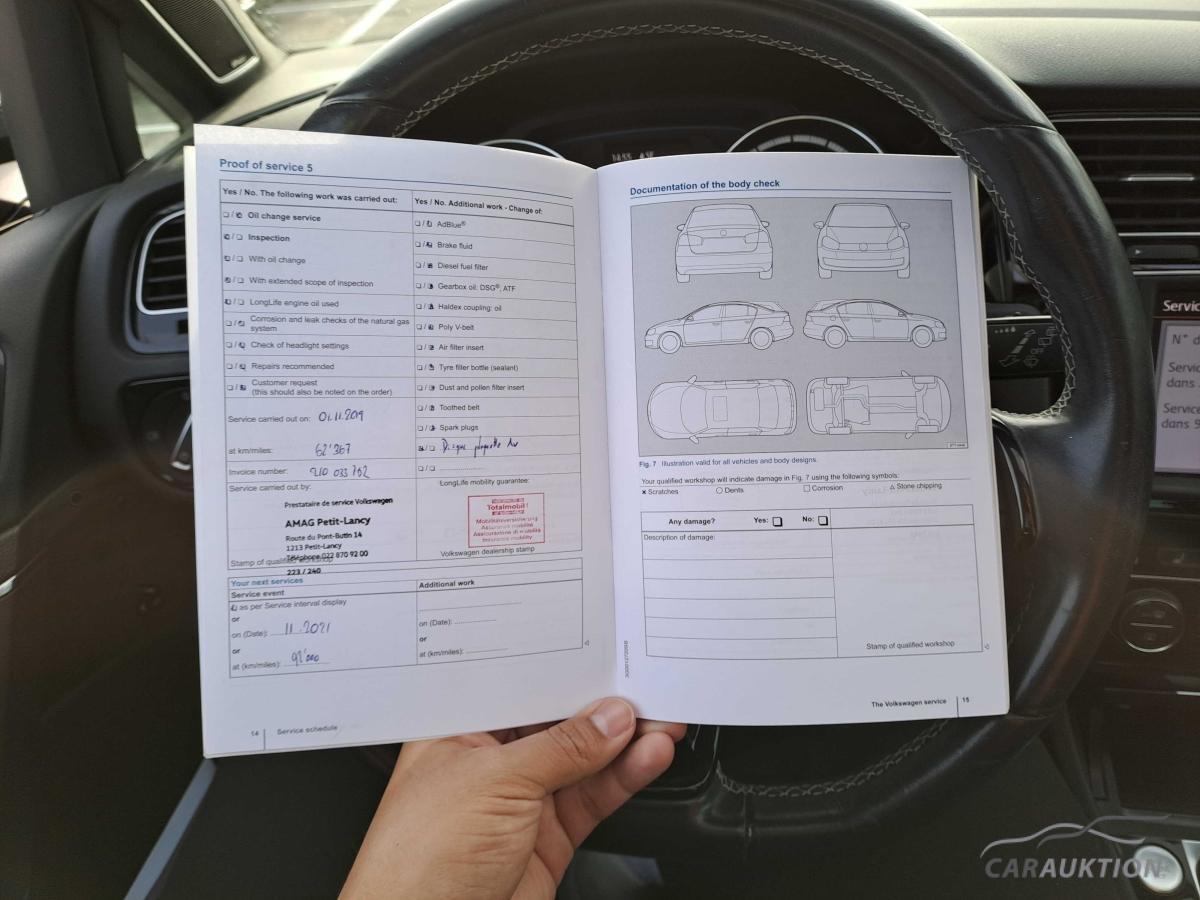 Proof of service 5
Yes / No. The following work was carried out:
Oil change service
Inspection
With oil change
With extended scope of inspection
LongLife engine oil used
Corrosion and leak checks of the natural gas
system
Check of headlight settings
Repairs recommended
Customer request
(this should also be noted on the order)
Service carried out on: 01.11.2019
at km/miles: 62'367
Invoice number: 210 033 752
Service carried out by:
Prestataire de service Volkswagen
AMAG Petit-Lancy
Route du Pont-Butin 14
1213 Petit-Lancy
Téléphone 022 870 92 00
Stamp of qualified workshop
223 / 240
Yes / No. Additional work - Change of:
AdBlue®
Brake fluid
Diesel fuel filter
Gearbox oil: DSG®, ATF
Haldex coupling: oil
Poly V-belt
Air filter insert
Tyre filler bottle (sealant)
Dust and pollen filter insert
Toothed belt
Spark plugs
Disque plaquette Av
LongLife mobility guarantee:
Totalmobil!
Mobilitätsversicherung
Assurance mobilité
Assicurazione di mobilità
Insurance mobility
Volkswagen dealership stamp
Your next services
Service event
as per Service interval display
or
on (Date): 11.2021
or
at (km/miles): 92'000
Additional work
on (Date):
or
at (km/miles):
14 | Service schedule
Documentation of the body check
Fig. 7 Illustration valid for all vehicles and body designs.
Your qualified workshop will indicate damage in Fig. 7 using the following symbols:
× Scratches ○ Dents □ Corrosion △ Stone chipping
Any damage? Yes: No:
Description of damage:
Stamp of qualified workshop
The Volkswagen service | 15
Servic
N° d
Servic
dans
Service
dans 9
OFF
CARAUKTION